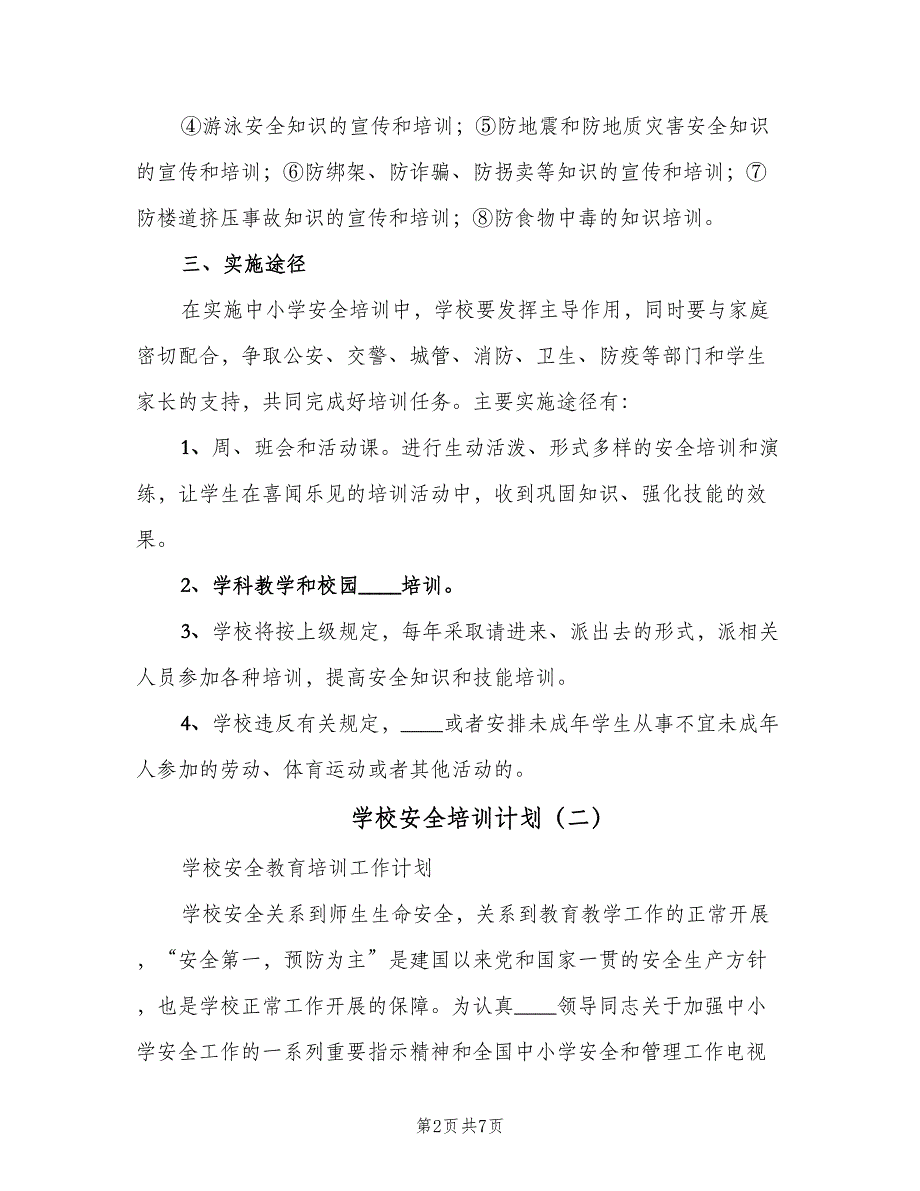 ④游泳安全知识的宣传和培训；⑤防地震和防地质灾害安全知识
的宣传和培训；⑥防绑架、防诈骗、防拐卖等知识的宣传和培训；⑦
防楼道挤压事故知识的宣传和培训；⑧防食物中毒的知识培训。
三、实施途径
在实施中小学安全培训中，学校要发挥主导作用，同时要与家庭
密切配合，争取公安、交警、城管、消防、卫生、防疫等部门和学生
家长的支持，共同完成好培训任务。主要实施途径有：
1、周、班会和活动课。进行生动活泼、形式多样的安全培训和演
练，让学生在喜闻乐见的培训活动中，收到巩固知识、强化技能的效
果。
2、学科教学和校园____培训。
3、学校将按上级规定，每年采取请进来、派出去的形式，派相关
人员参加各种培训，提高安全知识和技能培训。
4、学校违反有关规定，____或者安排未成年学生从事不宜未成年
人参加的劳动、体育运动或者其他活动的。
学校安全培训计划（二）
学校安全教育培训工作计划
学校安全关系到师生生命安全，关系到教育教学工作的正常开展
，“安全第一，预防为主”是建国以来党和国家一贯的安全生产方针
，也是学校正常工作开展的保障。为认真____领导同志关于加强中小
学安全工作的一系列重要指示精神和全国中小学安全和管理工作电视
第2页 共7页